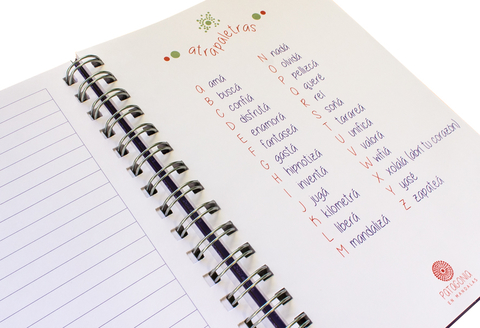 atrapaletras
A. amá
B buscá
C confiá
D disfrutá
E enamorá
F fantaseá
G gastá
H hipnotizá
I inventá
J jugá
K kilometrá
L liberá
M mandalizá
N nadá
O olvidá
P pellizcá
Q queré
R reí
S soñá
T tarareá
U unificá
V valorá
W wifiá
X xolalá (abrí tu corazón)
Y yasé
Z zapateá
PATAGONIA
EN MANDALAS